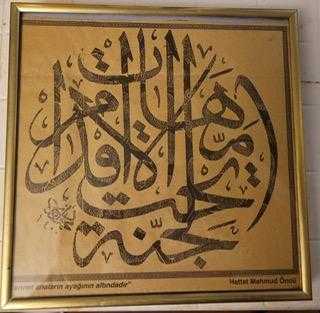 الجنة تحت أقدام الأمهات
ennet anaların ayağının altındadır"
Hattat Mahmud Öncü